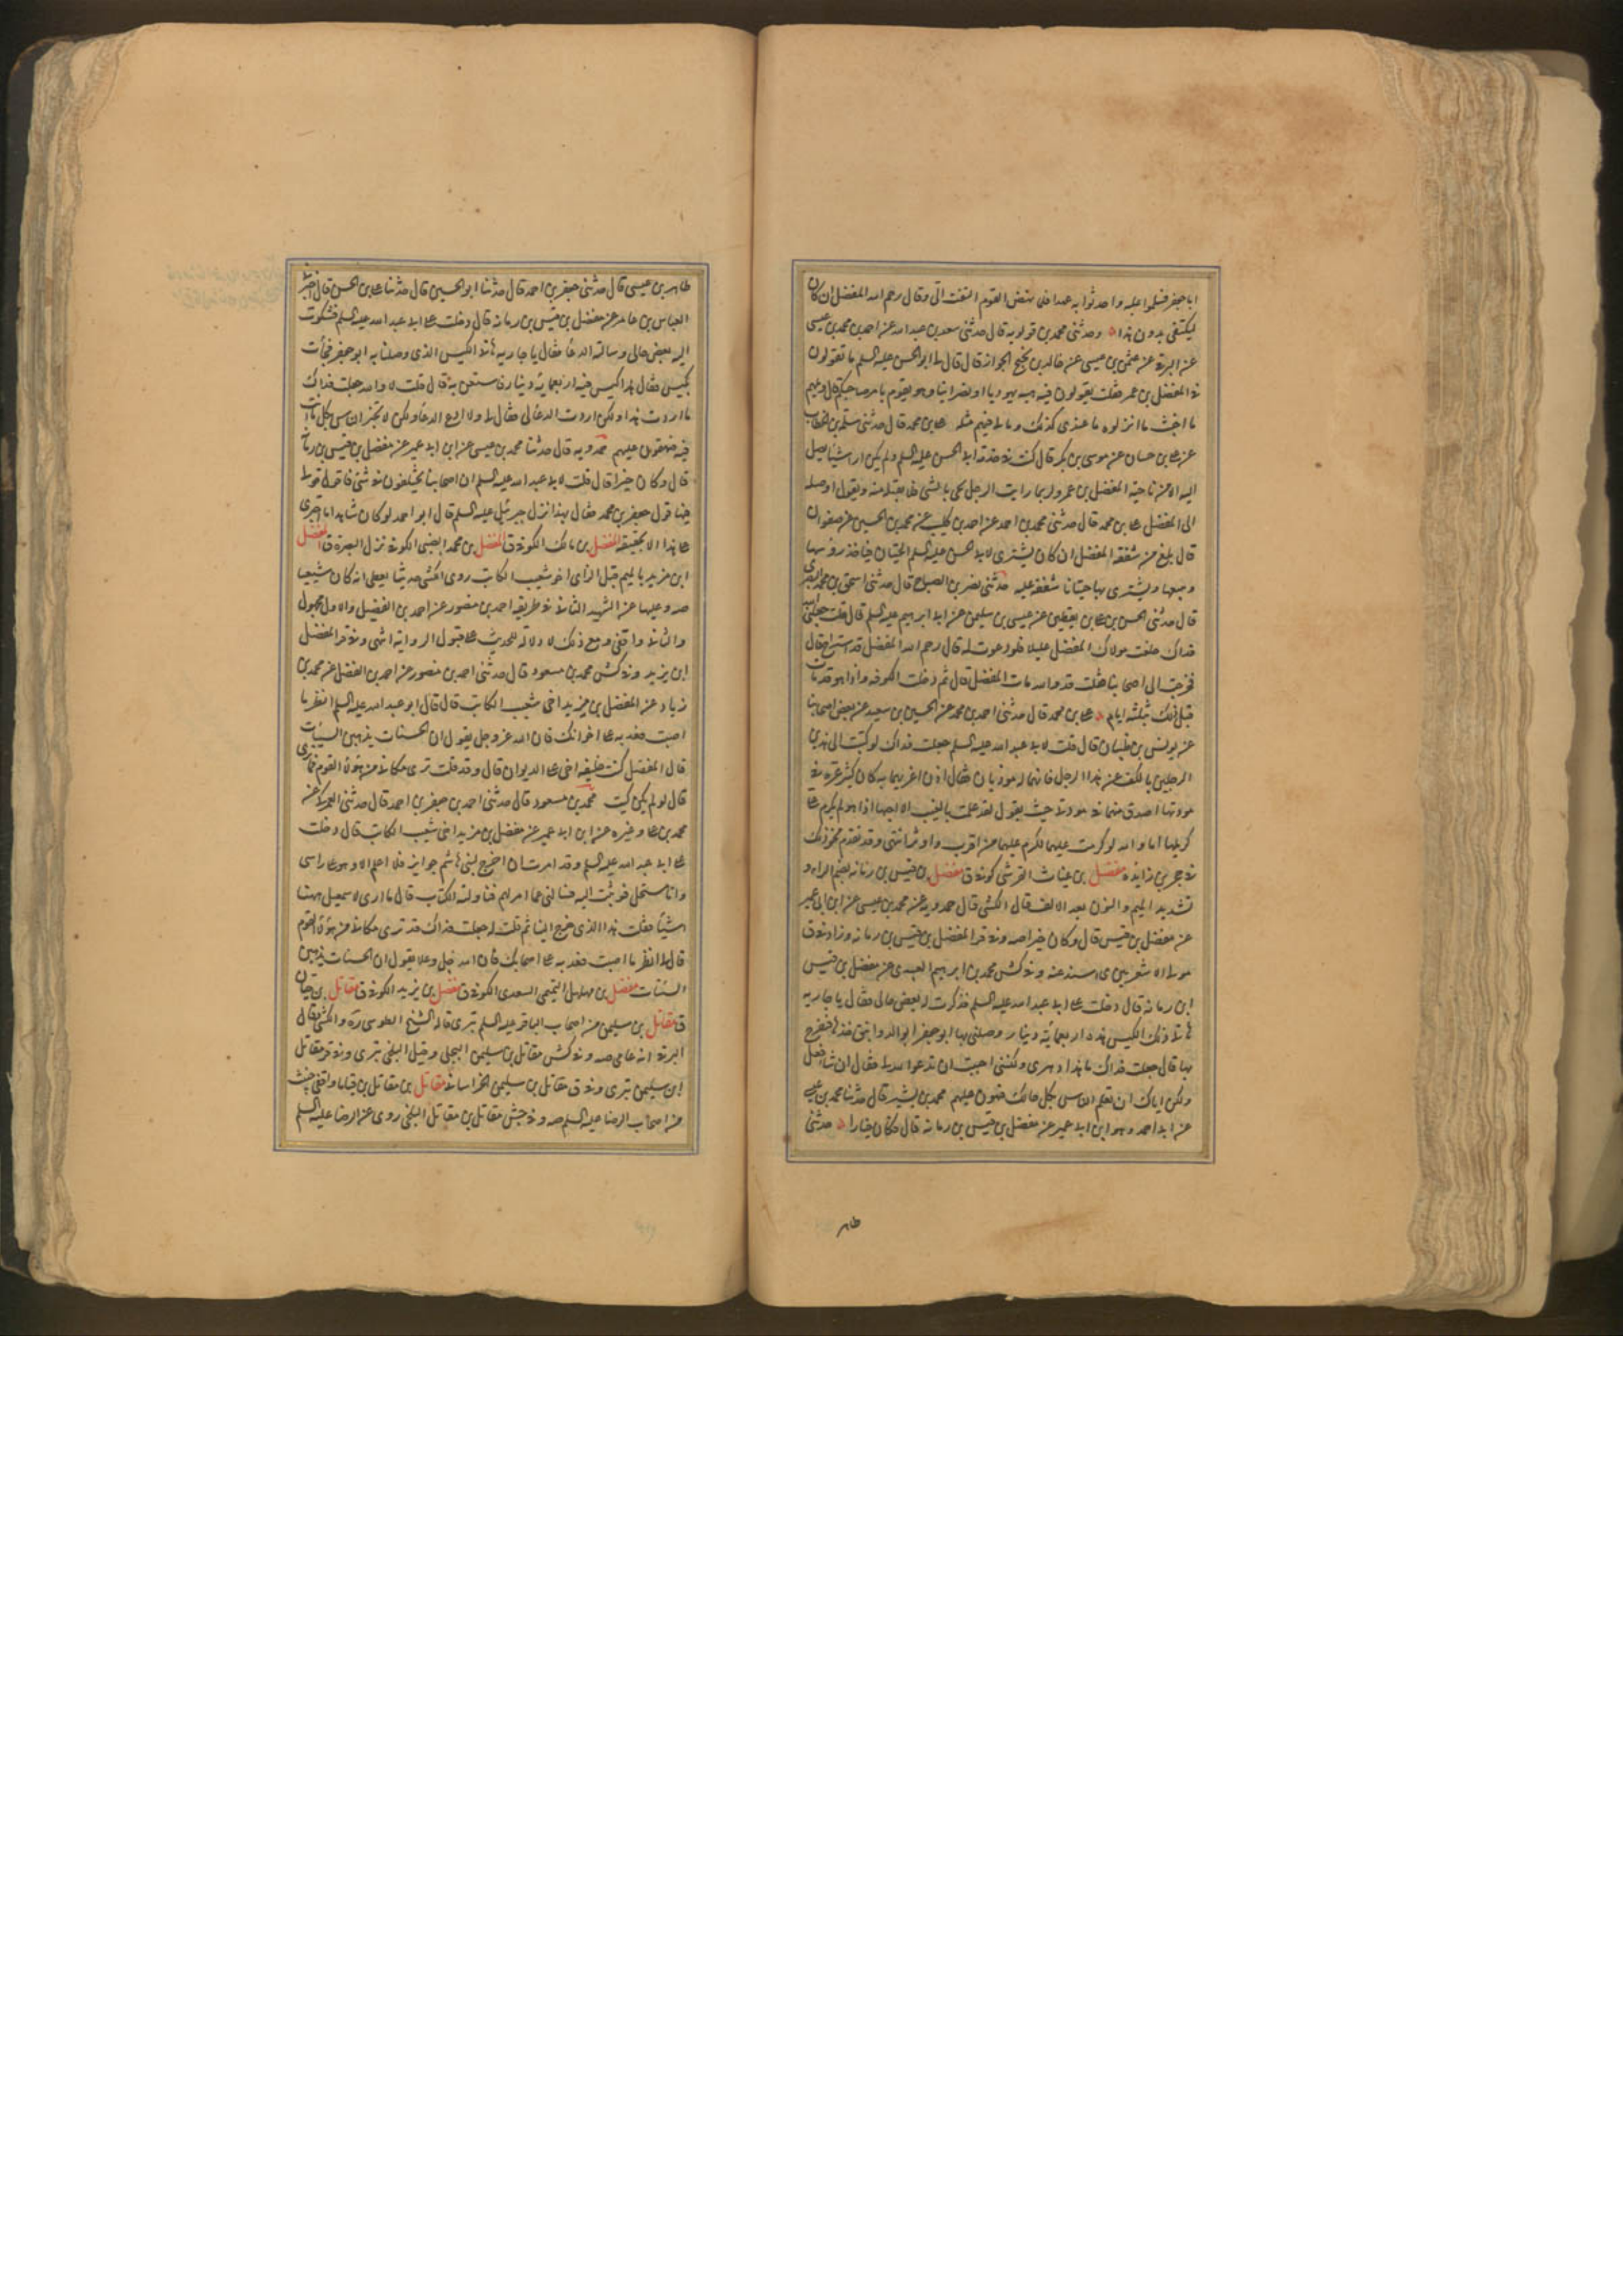 ابا جعفر فسلموا عليه واحدثوا به عهدا فلما نهض القوم التفت الي وقال رحم الله المفضل ان كان
ليكتفي بدون هذا وحدثني محمد بن قولويه قال حدثني سعد بن عبد الله عن احمد بن محمد بن عيسى
عن البرقي عن عثمن بن عيسى عن خالد بن نجيح الجواز قال قال لي ابو الحسن عليه السلم ما تقولون
في المفضل بن عمر فقلت يقولون فيه هبه يهوديا او نصرانيا وهو يقوم بامر صاحبكم قال ويلهم
ما اخبث ما انزلوه ما عندي كذلك وما لي فيهم مثله علي بن محمد قال حدثني سلمة بن الخطاب
عن علي بن حسان عن موسى بن بكر قال كنت في خدمة ابي الحسن عليه السلم ولم يكن ارى شيئا يصل
اليه الا من ناحية المفضل بن عمر ولربما رايت الرجل يجي بالشي فلا يقبله منه ويقول اوصله
الى المفضل علي بن محمد قال حدثني محمد بن احمد عن احمد بن كليب عن محمد بن الحسين عن صفوان
قال بلغ من شفقة المفضل ان كان يشتري لابي الحسن عليه السلم الحيتان فياخذ روسها
ويبيعها ويشتري بها حيتانا شفقة عليه حدثني نصر بن الصباح قال حدثني اسحق بن محمد البصري
قال حدثني الحسن بن علي بن يقطين عن عيسى بن سليمن عن ابي ابرهيم عليه السلم قال قلت جعلني الله
فداك خلفت مولاك المفضل عليلا فلو دعوت له قال رحم الله المفضل قد استراح قال
فخرجت الى اصحابنا فقلت قد والله مات المفضل قال ثم دخلت الكوفة واذا هو قد مات
قبل ذلك بثلثة ايام علي بن محمد قال حدثني احمد بن محمد عن الحسين بن سعيد عن بعض اصحابنا
عن يونس بن ظبيان قال قلت لابي عبد الله عليه السلم جعلت فداك لو كتبت الى هذين
الرجلين بالكف عن هذا الرجل فانهما له موذيان فقال اذن اغريهما به كان كثير عزة في
مودتها اصدق منهما في مودتي حيث يقول لقد علمت بالغيب الا احبها اذا هو لم يكرم علي
كريمها اما والله لو كرمت عليهما لكرم عليهما من اقرب واوثر انتهى وقد تقدم نحو ذلك
في حجر بن زايدة مفضل بن غياث القرشي كوفي ق مفضل بن قيس بن رمانة بضم الراء و
تشديد الميم والنون بعد الالف قال الكشي قال حمدويه عن محمد بن عيسى عن ابن ابي عمير
عن مفضل بن قيس قال وكان خيرا صه وفي قر المفضل بن قيس بن رمانة وزاد في ق
مولى الاشعريين اسند عنه وفي كش محمد بن ابرهيم العبيدي عن مفضل بن قيس
ابن رمانة قال دخلت على ابي عبد الله عليه السلم فذكرت له بعض حالي فقال يا جارية
هاتي ذلك الكيس هذه اربعمائة دينار وصلني بها ابو جعفر ابو الدوانيق خذها تفرج
بها قال جعلت فداك ما هذا دهري ولكنني احببت ان تدعو الله لي فقال ان سافعل
ولكن اياك ان تعلم الناس بكل حالك فتهون عليهم محمد بن بشير قال حدثنا محمد بن عيسى
عن ابي احمد وهو ابن ابي عمير عن مفضل بن قيس بن رمانة قال وكان خيارا حدثني
طاهر
طاهر بن عيسى قال حدثني جعفر بن احمد قال حدثنا ابو الحسين قال حدثنا علي بن الحسن قال اخبرنا
العباس بن عامر عن مفضل بن قيس بن رمانة قال دخلت على ابي عبد الله عليه السلم فشكوت
اليه بعض حالي وسالته الدعا فقال يا جارية هاتي الكيس الذي وصلنا به ابو جعفر فجأت
بكيس فقال هذا كيس فيه اربعمائة دينار فاستعن به قال قلت لا والله جعلت فداك
ما اردت هذا ولكن اردت الدعا لي فقال لي ولا ادع الدعا ولكن لا تخبر الناس بكل ما انت
فيه فتهون عليهم حمدويه قال حدثنا محمد بن عيسى عن ابن ابي عمير عن مفضل بن قيس بن رمانة
قال وكان خيرا قال قلت لابي عبد الله عليه السلم ان اصحابنا يختلفون في شي فاقول قولي
فيها قول جعفر بن محمد فقال بهذا نزل جبرئيل عليه السلم قال ابو احمد لو كان شاهدا ما اجترى
على هذا الا بحقيقة المفضل بن مالك الكوفي ق المفضل بن محمد الضبي الكوفي نزل البصرة ق المفضل
ابن مزيد بالميم قبل الزاي اخو شعيب الكاتب روى الكشي حديثا يعطي انه كان شيعيا
صه وعليها عن الشهيد الثاني في طريقه احمد بن منصور عن احمد بن الفضيل والاول مجهول
والثاني واقفي ومع ذلك لا دلالة للحديث على قبول الرواية انتهى وفي قر المفضل
ابن يزيد وفي كش محمد بن مسعود قال حدثني احمد بن منصور عن احمد بن الفضل عن محمد بن
زياد عن المفضل بن مزيد اخي شعيب الكاتب قال قال ابو عبد الله عليه السلم انظر ما
اصبت فعد به على اخوانك فان الله عز وجل يقول ان الحسنات يذهبن السيئات
قال المفضل كنت خليفة اخي على الديوان قال وقد قلت ترى مكاني من هؤلاء القوم فما ترى
قال لو لم يكن كيت محمد بن مسعود قال حدثني احمد بن جعفر بن احمد قال حدثني العمركي عن
محمد بن علي وغيره عن ابن ابي عمير عن مفضل بن مزيد اخي شعيب الكاتب قال دخلت
على ابي عبد الله عليه السلم وقد امرت ان اخرج لبني هاشم جوايز فلم اعلم الا وهو على راسي
وانا مستخل فوثبت اليه فسالني عما امر لهم فناولته الكتاب قال ما ارى لاسمعيل ههنا
شيئا فقلت هذا الذي خرج الينا ثم قلت له جعلت فداك قد ترى مكاني من هؤلاء القوم
فقال لي انظر ما اصبت فعد به على اصحابك فان الله جل وعلا يقول ان الحسنات يذهبن
السيئات مفضل بن مهلهل التميمي السعدي الكوفي ق مفضل بن يزيد الكوفي ق مقاتل بن حيان
ق مقاتل بن سليمن من اصحاب الباقر عليه السلم بتري قاله الشيخ الطوسي ره والكشي وقال
البرقي انه عامي صه وفي كش مقاتل بن سليمن البجلي وقيل البلخي بتري وفي قر مقاتل
ابن سليمن بتري وفي ق مقاتل بن سليمن الخراساني مقاتل بن مقاتل بن قياما واقفي خبيث
من اصحاب الرضا عليه السلم صه وفي جش مقاتل بن مقاتل البلخي روى عن الرضا عليه السلم